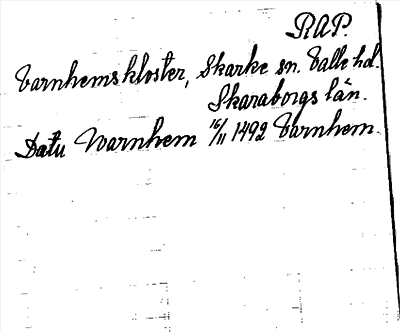 RAP.
Varnhems kloster, Skarke sn. Valle hd.
Skaraborgs län.
Datu Warnhem 16/11 1492 Varnhem.